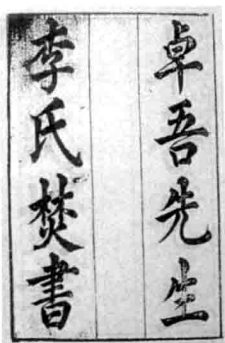 卓吾先生
李氏焚書